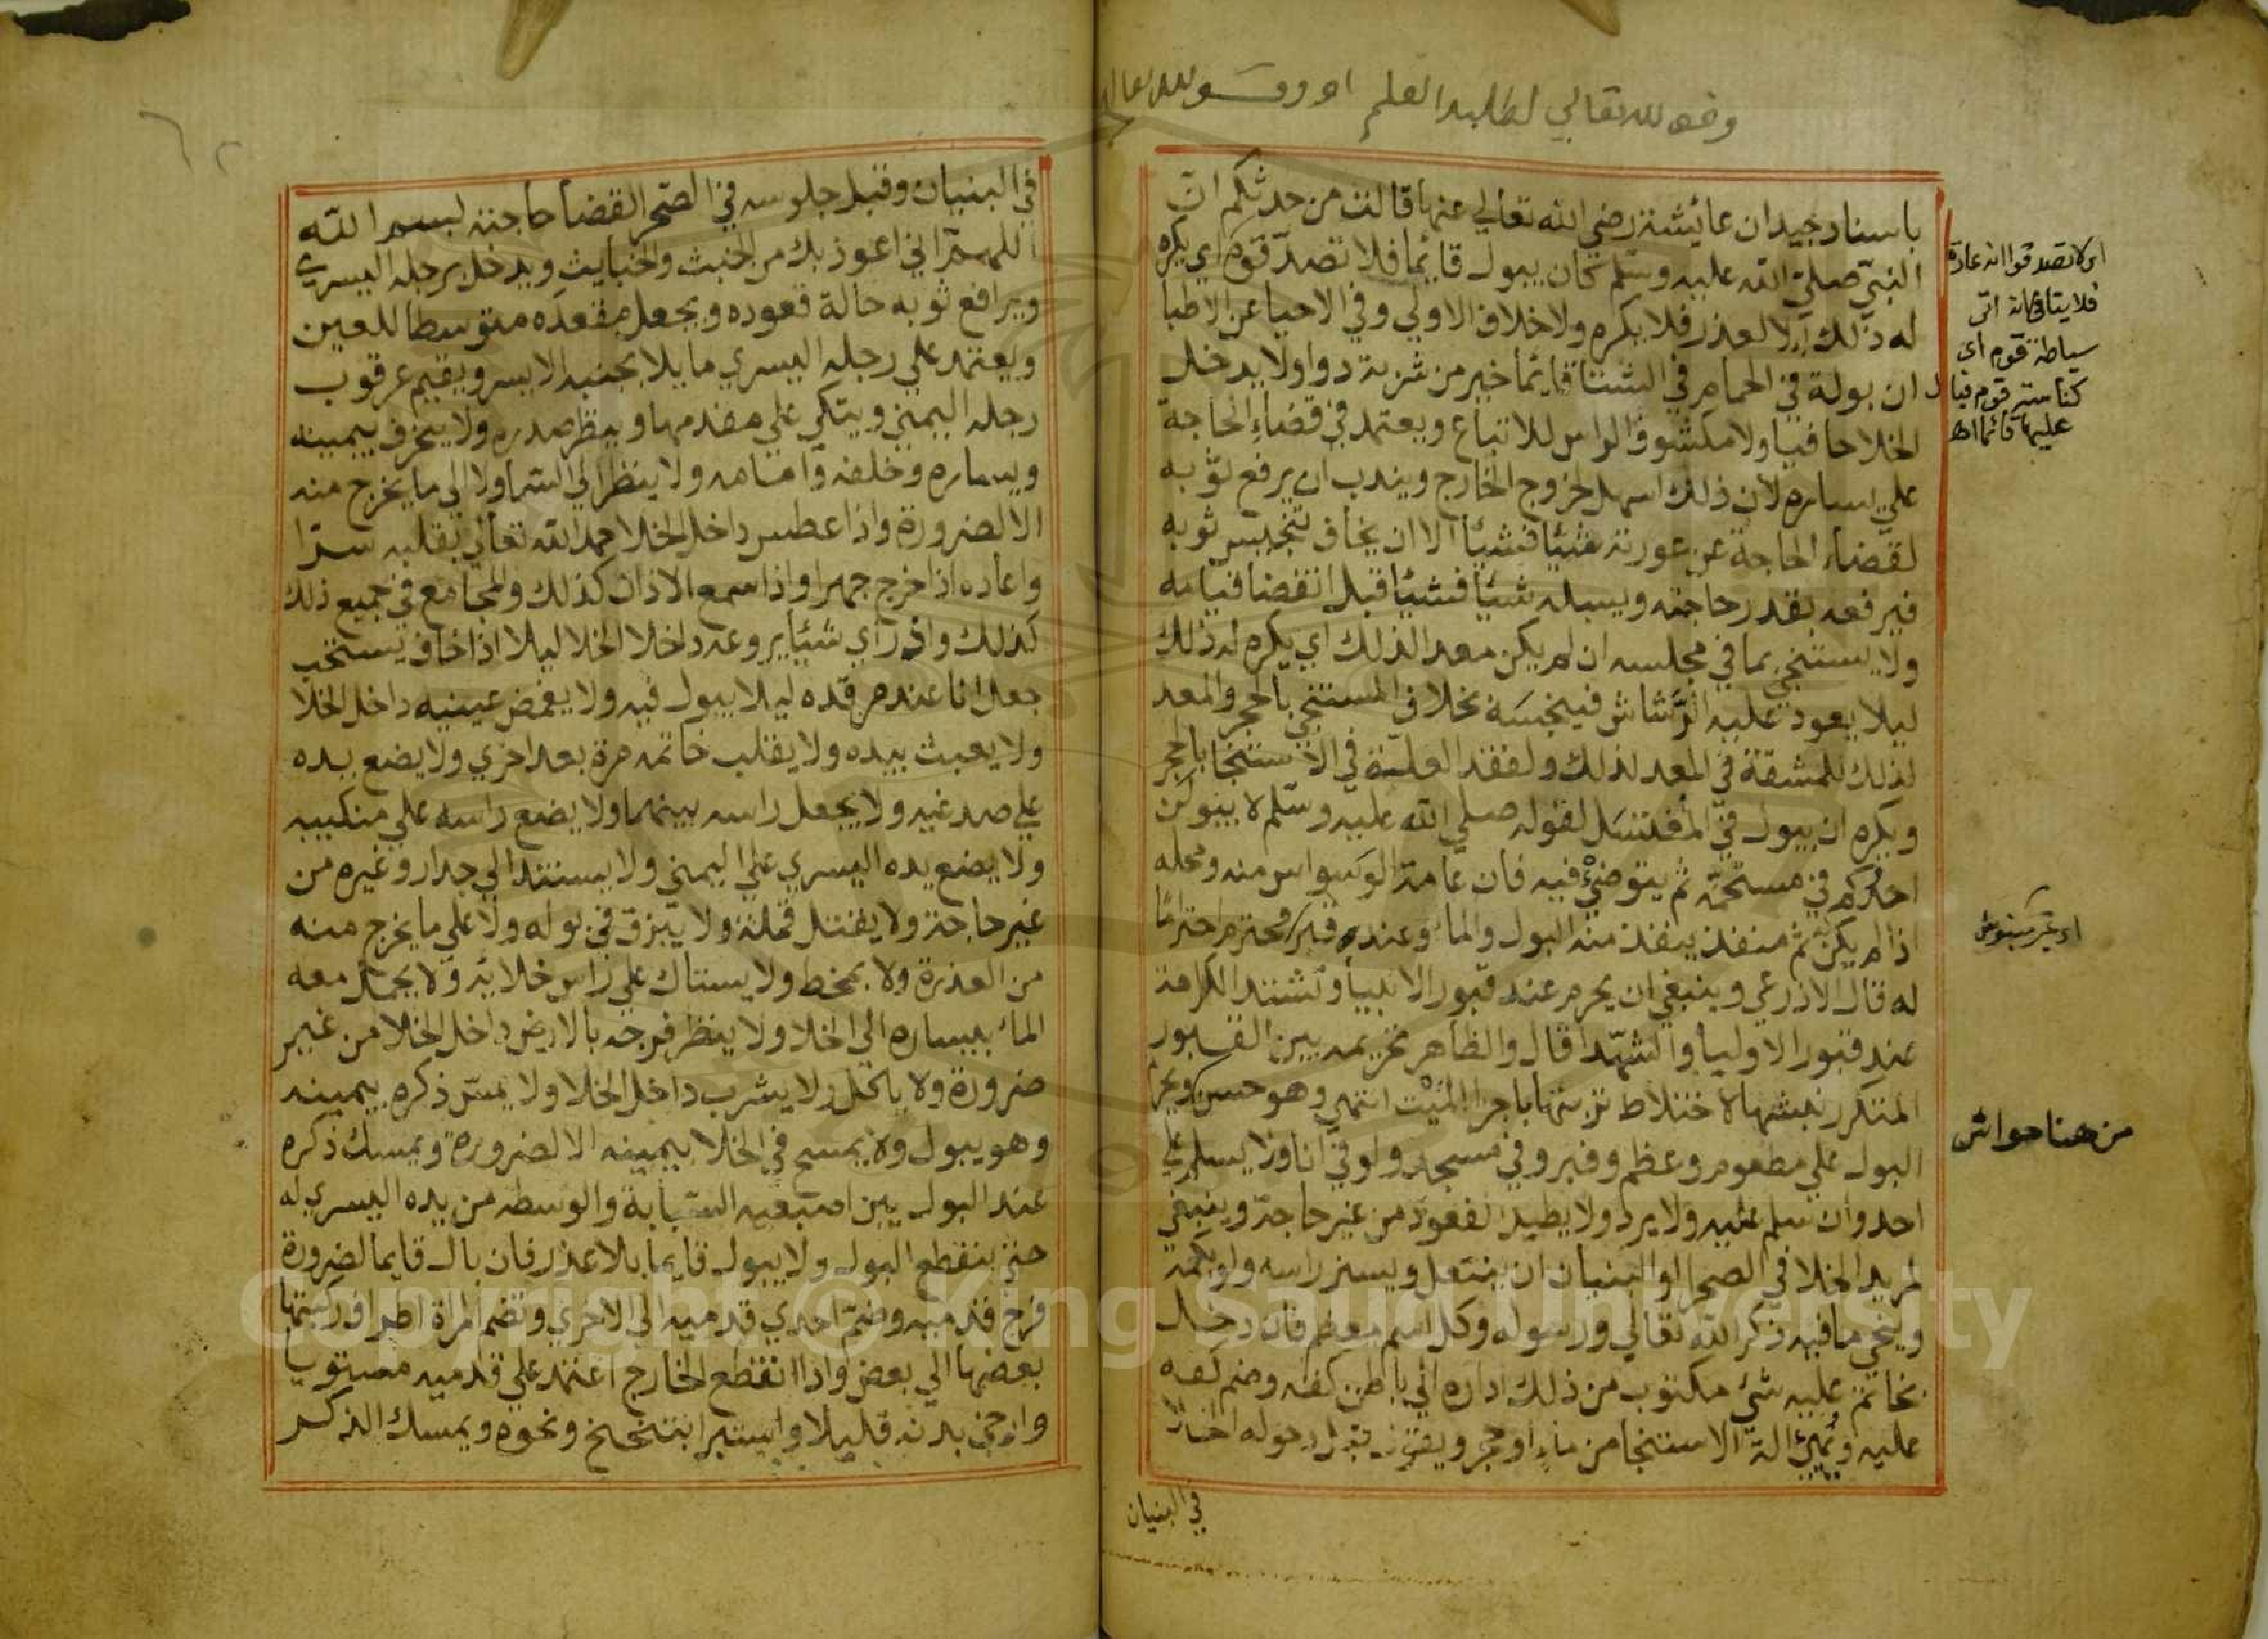 وقف لله تعالى لطلبة العلم
باسناد جيد ان عائشة رضي الله تعالي عنها قالت من حدثكم ان
النبي صلي الله عليه وسلم كان يبول قائما فلا تصدقوه اي يكره
له ذلك لا لعذر فلا يكره ولا خلاف الاولي وفي الاحيا عن الاطبا
ان بولة في الحمام في الشتا قائما خير من شربة دوا ولا يدخل
الخلا حافيا ولا مكشوف الراس للاتباع ويعتمد في قضاء الحاجة
علي يساره لان ذلك اسهل لخروج الخارج ويندب ان يرفع ثوبه
لقضاء الحاجة عن عورته شيئا فشيئا الا ان يخاف تنجيس ثوبه
فيرفعه بقدر حاجته ويسبله شيئا فشيئا قبل انقضا قيامه
ولا يستنجي بما في مجلسه ان لم يكن معد الذلك اي يكره له ذلك
ليلا يعود عليه الرشاش فينجسه بخلاف المستنجي بالحجر والمعد
لذلك للمشقة في المعد لذلك ولفقد العلة في الاستنجا بالحجر
ويكره ان يبول في المغتسل لقوله صلي الله عليه وسلم لا يبولن
احدكم في مستحمه ثم يتوضئ فيه فان عامة الوسواس منه ومحله
اذا لم يكن ثم منفذ ينفذ منه البول والما وعند قبر محترم احتراما
له قال الاذرعي وينبغي ان يحرم عند قبور الانبيا وتشتد الكرامة
عند قبور الاوليا والشهدا قال والظاهر تحريمه بين القبور
المتكرر نبشها لاختلاط تربتها باجزا الميت انتهي وهو حسن ويحرم
البول علي مطعوم وعظم وقبر وفي مسجد ولو في انا ولا يسلم علي
احد وان سلم عليه ولا يرد ولا يطيل القعود من غير حاجة وينبغي
لمريد الخلا في الصحرا او البنيان ان ينتعل ويستر راسه ولو بكمه
وينحي ما فيه ذكر الله تعالي ورسوله وكل اسم معظم فان دخل
بخاتم عليه شيء مكتوب من ذلك اداره الي باطن كفه وضم كفه
عليه ويهيئ الة الاستنجا من ماء او حجر ويقول قبل دخوله الخلا
في البنيان
اي لا تصدقوا انه عادة
فلا ينافي انه اتى
سباطة قوم اي
كناسة قوم فبال
عليها قائما اهـ
من هنا حواش
في البنيان وقبل جلوسه في الصحرا لقضا حاجته لبسم الله
اللهم اني اعوذ بك من الخبث والخبايث ويدخل برجله اليسري
ويرافع ثوبه حالة قعوده ويجعل مقعده متوسطا للعين
ويعتمد علي رجله اليسري مايلا بجنبه الايسر ويقيم عرقوب
رجله اليمني ويتكي علي مقدمها وينظر صدره ولا ينحرف بيمينه
ويساره وخلفه وامامه ولا ينظر الي السما ولا الي ما يخرج منه
الا لضرورة واذا عطس داخل الخلا حمد الله تعالي بقلبه سرا
واعاده اذا خرج جهرا واذا سمع الاذان كذلك والمجامع في جميع ذلك
كذلك واذ راي شيئا يروعه داخلا الخلا ليلا اذا خاف يستحب
جعل انا عند مرقده ليلا يبول فيه ولا يغمض عينيه داخل الخلا
ولا يعبث بيده ولا يقلب خاتمه مرة بعد اخري ولا يضع يده
علي صدغيه ولا يجعل راسه بينهما ولا يضع راسه علي منكبيه
ولا يضع يده اليسري علي اليمني ولا يستند الي جدار وغيره من
غير حاجة ولا يقتل قملة ولا يبزق في بوله ولا علي ما يخرج منه
من العذرة ولا يمخط ولا يستاك علي راس خلاية ولا يحمل معه
الما بيساره الي الخلا ولا ينظر فرجه بالارض داخل الخلا من غير
ضرورة ولا ياكل ولا يشرب داخل الخلا ولا يمس ذكره بيمينه
وهو يبول ولا يمسح في الخلا بيمينه الا لضرورة ويمسك ذكره
عند البول بين اصبعيه السبابة والوسطه من يده اليسري له
حتي ينقطع البول ولا يبول قايما بلا عذر فان بال قايما لضرورة
فرج قدميه وضم احدي قدميه الي الاخري وتضم المراة اطراف ركبتها
بعضها الي بعض واذا انقطع الخارج اعتمد علي قدميه مستويا
وارخي بدنه قليلا واستبرا بتنحنح ونحوه ويمسك الذكر
Copyright © King Saud University